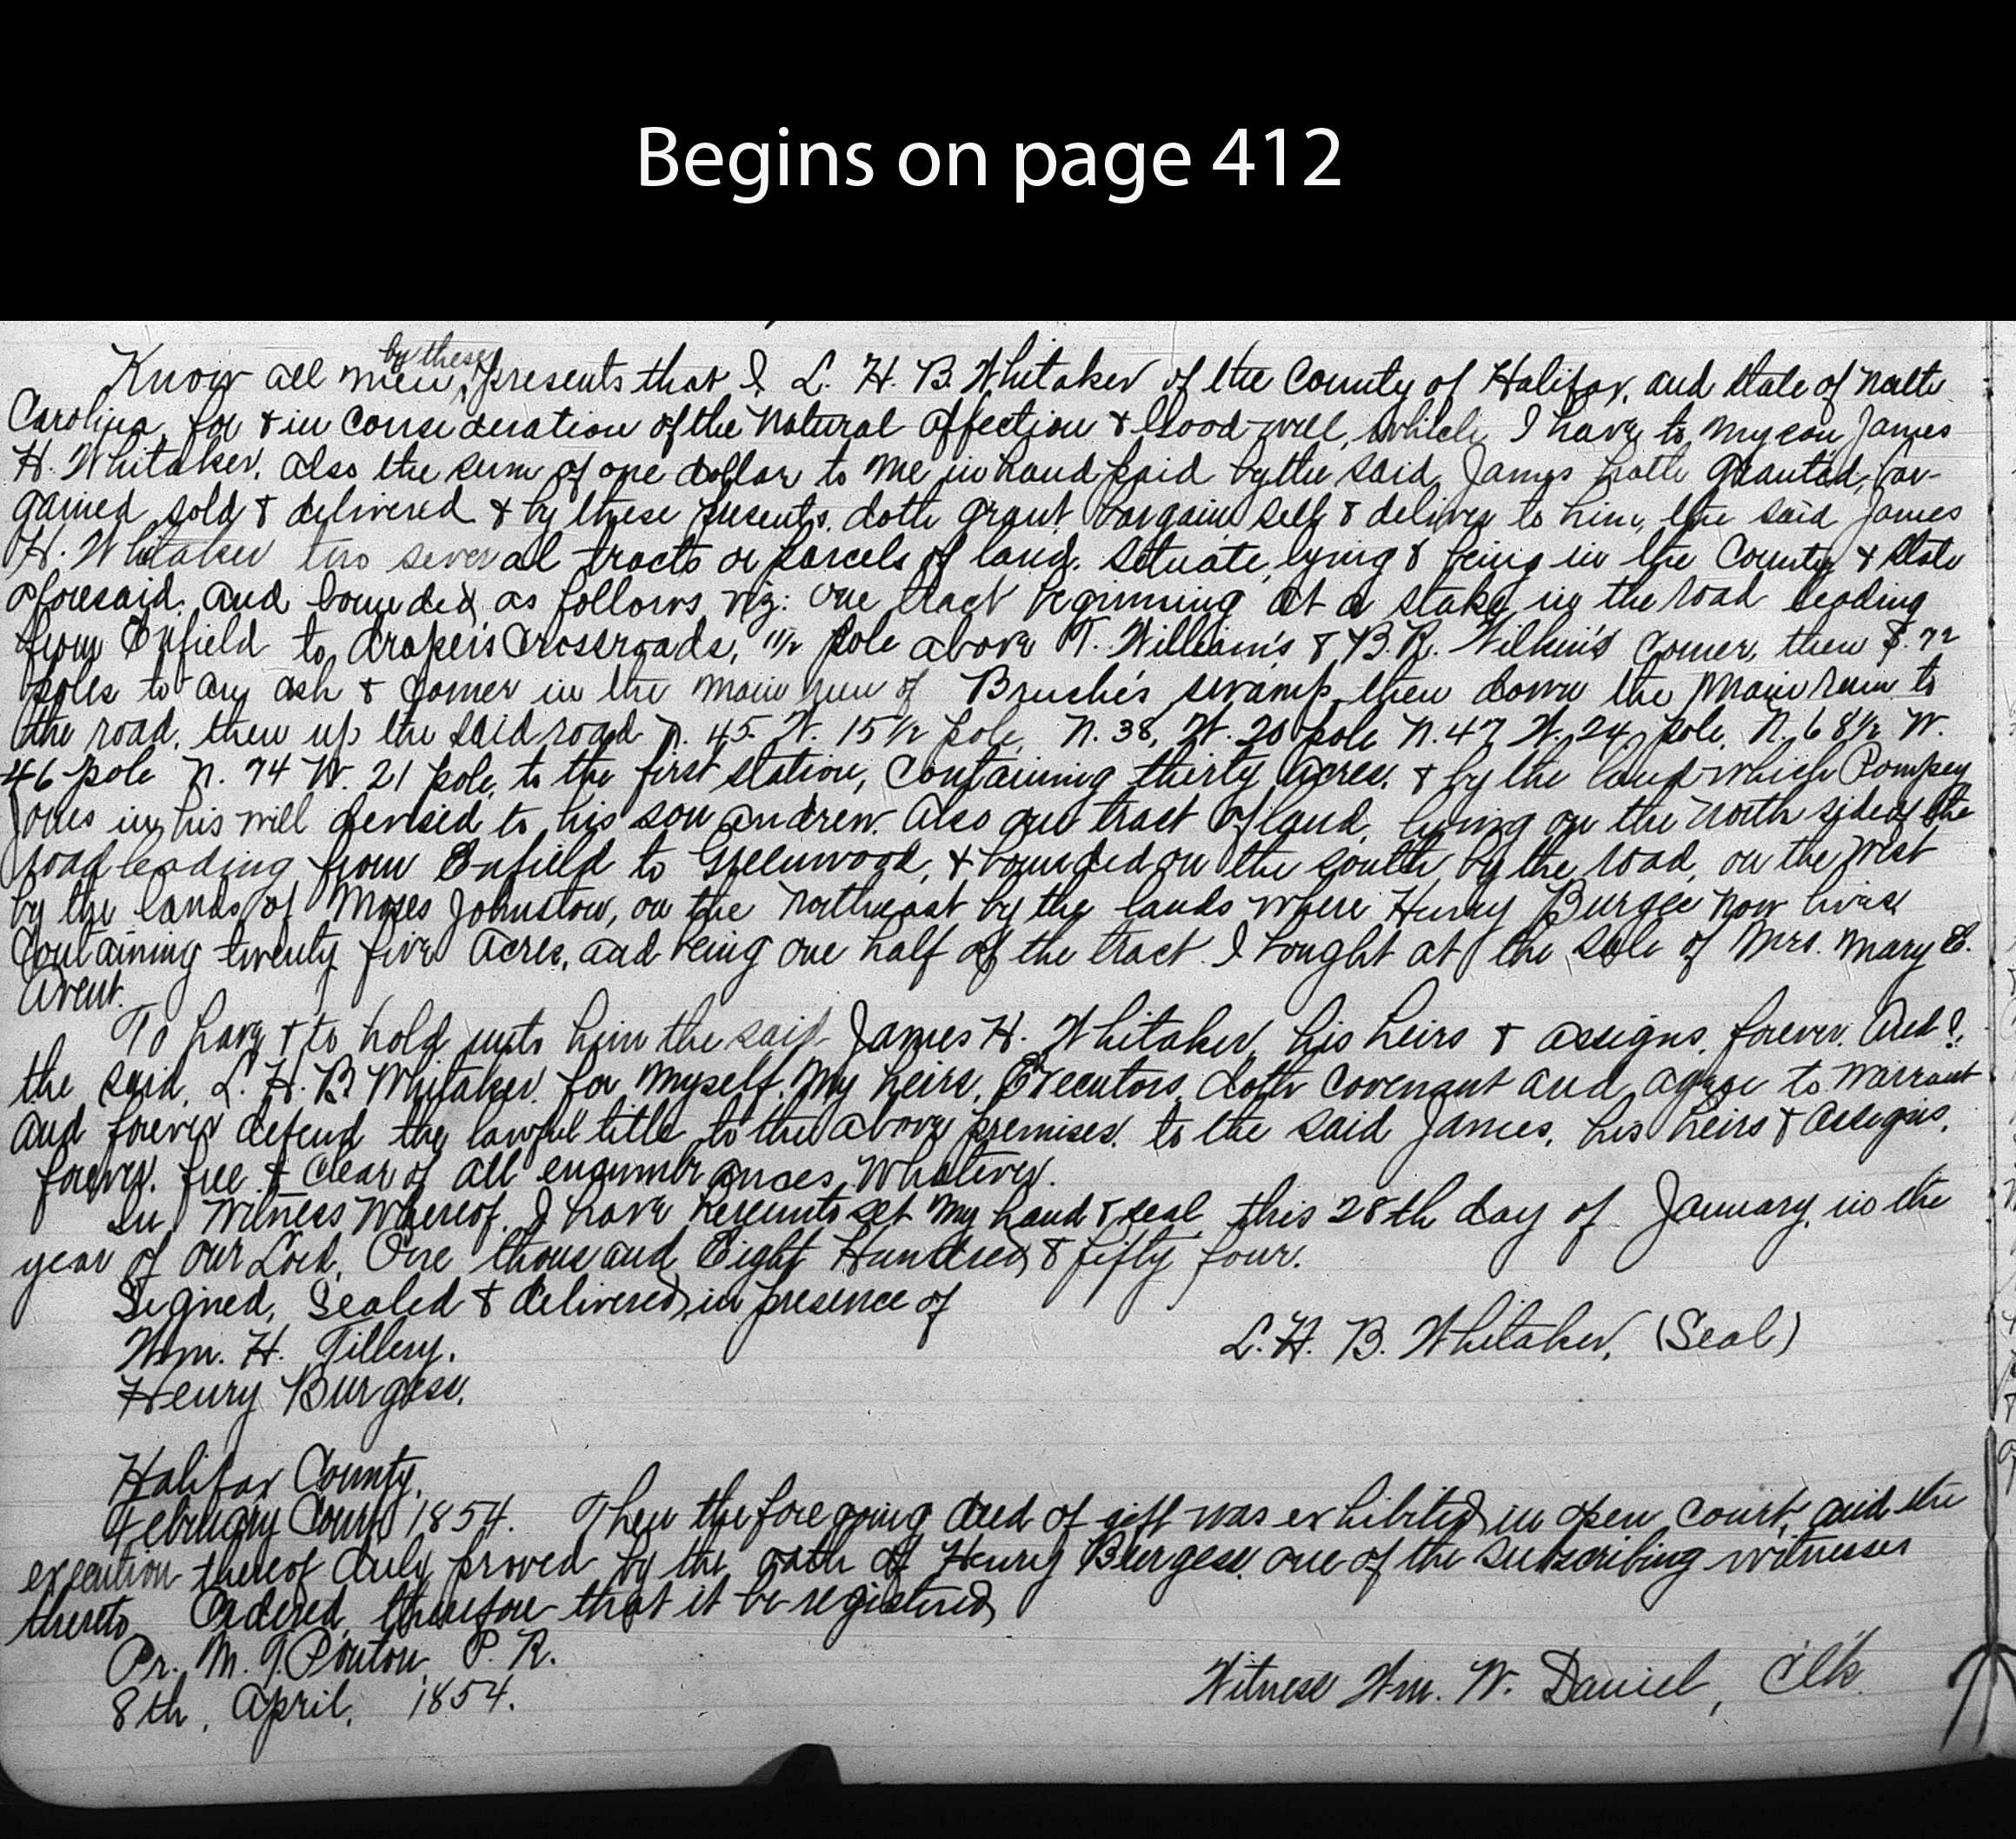 Begins on page 412
Know all men by these presents that I L. H. B. Whitaker of the County of Halifax, and State of North
Carolina, for & in consideration of the natural affection & Good-will, which I have to my son James
H. Whitaker, also the sum of one dollar to me in hand paid by the said James hath granted, bar-
gained sold & delivered & by these presents, doth grant bargain sell & deliver to him, the said James
H. Whitaker two several tracts or parcels of land. Situate, lying & being in the County & State
aforesaid. and bounded as follows viz: One tract beginning at a stake in the road leading
from Enfield to drapers Crossroads, 11½ pole above T. William's & B. R. Wilkin's corner, then S. 72
poles to an ash & corner in the main run of swamp, then down the main run to
the road, then up the said road N. 45 W. 15½ pole, N. 38, W. 20 pole N. 47 W. 24 pole, N. 68½ W.
46 pole N. 74 W. 21 pole, to the first station, containing thirty acres. & by the land which Pompey
Jones in his will devised to his son andrew. Also one tract of land, lying on the north side of the
road leading from Enfield to Greenwood, & bounded on the south by the road, on the West
by the lands of Moses Johnston, on the Northeast by the lands where Henry Burgee now lives
Containing twenty five Acres, and being one half of the tract I bought at the sale of Mrs. Mary E.
Avent.
To have & to hold unto him the said James H. Whitaker, his heirs & assigns, forever. And I,
the said, L. H. B. Whitaker for myself, my heirs, Executors doth covenant and agree to warrant
and forever defend the lawful title to the above premises, to the said James, his heirs & assigns,
forever. free & clear of all encumbrances Whatever.
In Witness Whereof, I have hereunto set my hand & seal this 28th day of January, in the
year of our Lord, One thousand Eight Hundred & fifty four.
Signed, Sealed & delivered in presence of
L. H. B. Whitaker, (Seal)
Wm. H. Tillery.
Henry Burgess.
Halifax County,
February Court 1854. Then the foregoing deed of gift was exhibited in open court, and the
execution thereof duly proved by the oath of Henry Burgess, one of the subscribing witnesses
thereto Ordered, therefore that it be registered
Pr. M. J. Ponton, P. R.
Witness Wm. W. Daniel, Clk
8th, April, 1854.